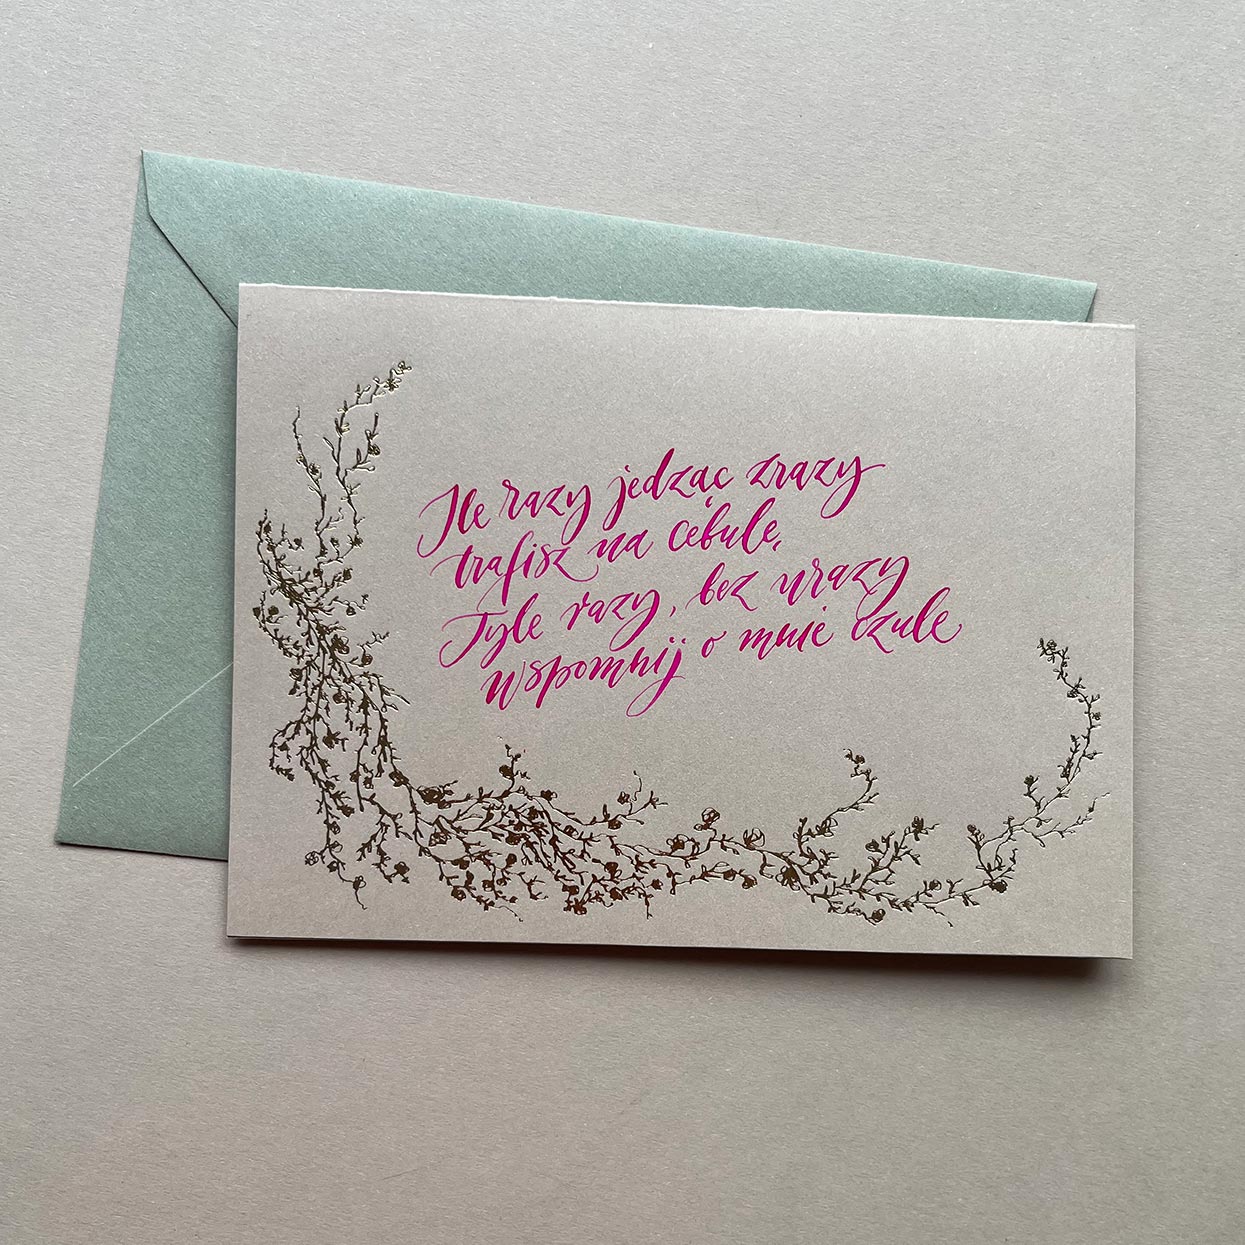 Ile razy jedząc zrazy
trafisz na cebulę,
Tyle razy, bez urazy
wspomnij o mnie czule